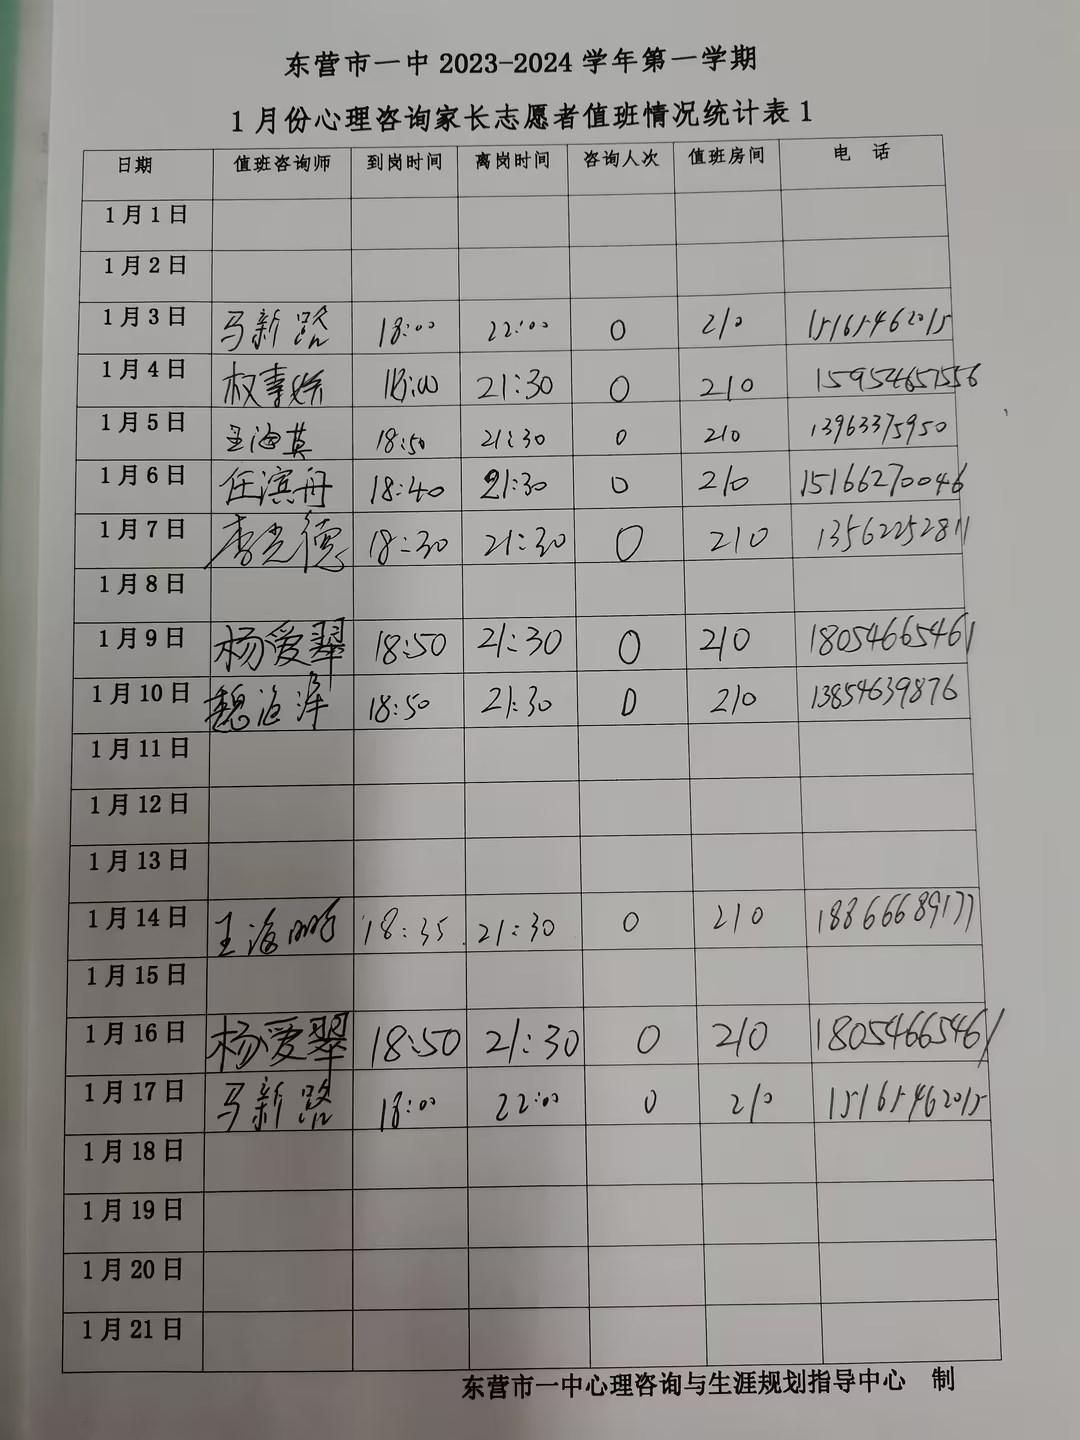 东营市一中 2023-2024 学年第一学期
1 月份心理咨询家长志愿者值班情况统计表 1
日期 值班咨询师 到岗时间 离岗时间 咨询人次 值班房间 电 话
1 月 1 日
1 月 2 日
1 月 3 日 马新路 18:00 22:00 0 210 15165462015
1 月 4 日 18:00 21:30 0 210 15954657556
1 月 5 日 王海英 18:50 21:30 0 210 13963375950
1 月 6 日 任滨舟 18:40 21:30 0 210 15166270046
1 月 7 日 李光德 18:30 21:30 0 210 13562252811
1 月 8 日
1 月 9 日 杨爱翠 18:50 21:30 0 210 18054665461
1 月 10 日 魏海洋 18:50 21:30 0 210 13854639876
1 月 11 日
1 月 12 日
1 月 13 日
1 月 14 日 王海鹏 18:35 21:30 0 210 18866689177
1 月 15 日
1 月 16 日 杨爱翠 18:50 21:30 0 210 18054665461
1 月 17 日 马新路 18:00 22:00 0 210 15165462015
1 月 18 日
1 月 19 日
1 月 20 日
1 月 21 日
东营市一中心理咨询与生涯规划指导中心 制